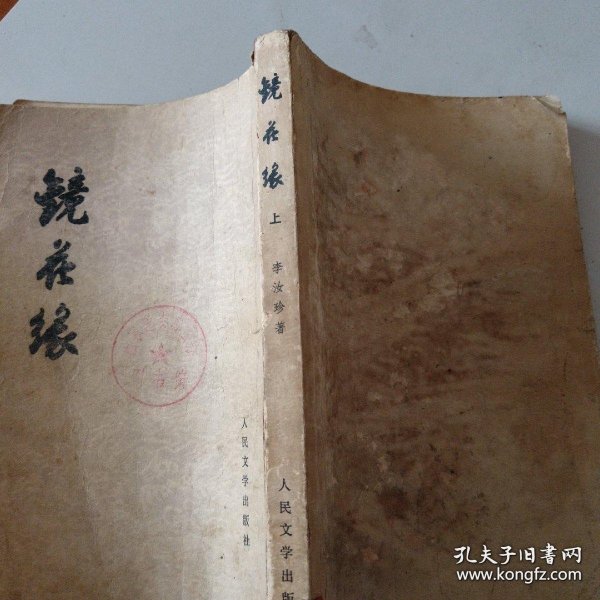 镜花缘
人民文学出版社
镜花缘
上
李汝珍著
人民文学出版
孔夫子旧书网
www.kongfz.com